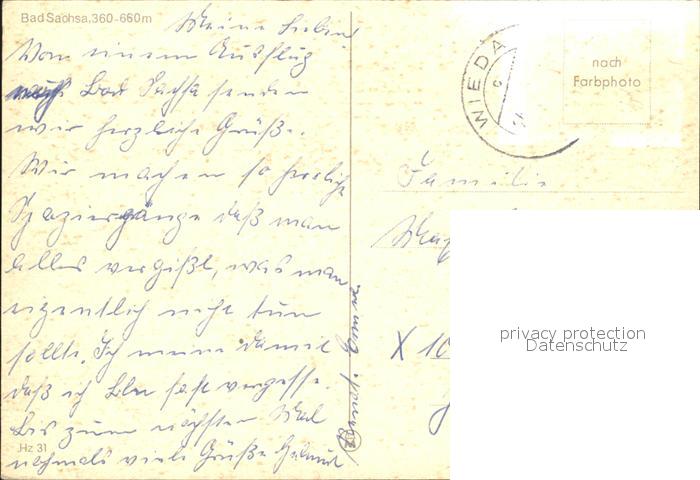 Bad Sachsa, 360-660m
Meine Lieben!
Von einem Ausflug
nach Bad Sachsa senden
wir herzliche Grüße.
Wir machen so herrliche
Spaziergänge daß man
alles vergißt, was man
eigentlich nicht tun
sollte. Ich meine damit
daß ich fast vergesse.
Bis zum nächsten Mal
nochmals viele Grüße Helmut
Hz 31
WIEDA
nach
Farbphoto
Familie
X 10
privacy protection
Datenschutz